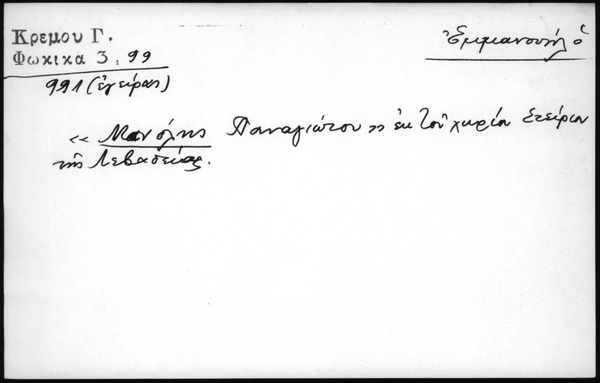 Κρεμου Γ.
Φωκικα 3, 99
Ἐμμανουήλ ὁ
991 (ἐγείρας)
« Μανόλης Παναγιώτου » ἐκ τοῦ χωρίου Στείριον
τῆς Λεβαδείας.